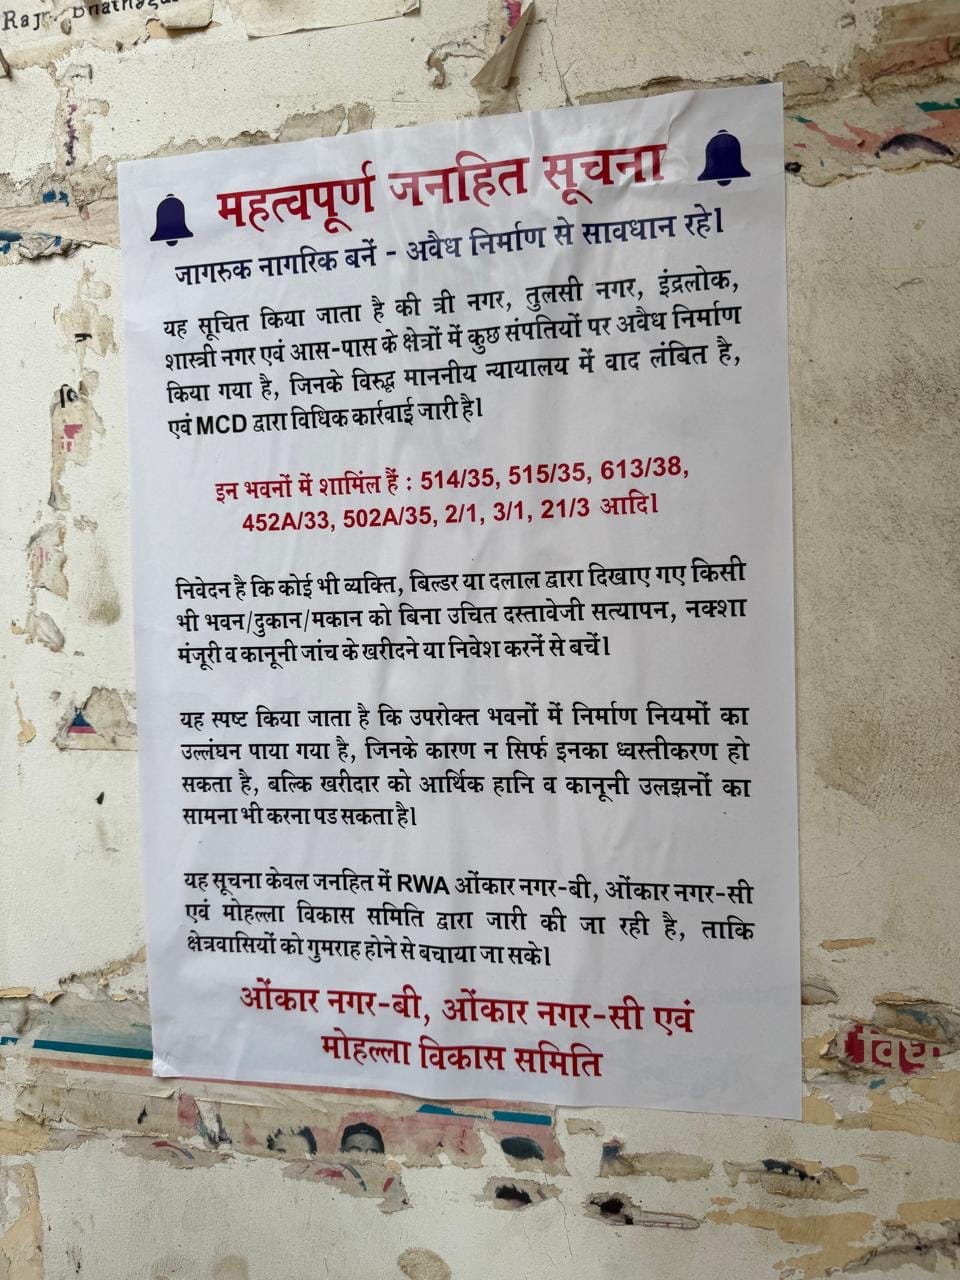 महत्वपूर्ण जनहित सूचना
जागरुक नागरिक बनें - अवैध निर्माण से सावधान रहे।
यह सूचित किया जाता है की त्री नगर, तुलसी नगर, इंद्रलोक,
शास्त्री नगर एवं आस-पास के क्षेत्रों में कुछ संपतियों पर अवैध निर्माण
किया गया है, जिनके विरुद्ध माननीय न्यायालय में वाद लंबित है,
एवं MCD द्वारा विधिक कार्रवाई जारी है।
इन भवनों में शामिंल हैं : 514/35, 515/35, 613/38,
452A/33, 502A/35, 2/1, 3/1, 21/3 आदि।
निवेदन है कि कोई भी व्यक्ति, बिल्डर या दलाल द्वारा दिखाए गए किसी
भी भवन/दुकान/मकान को बिना उचित दस्तावेजी सत्यापन, नक्शा
मंजूरी व कानूनी जांच के खरीदने या निवेश करनें से बचें।
यह स्पष्ट किया जाता है कि उपरोक्त भवनों में निर्माण नियमों का
उल्लंघन पाया गया है, जिनके कारण न सिर्फ इनका ध्वस्तीकरण हो
सकता है, बल्कि खरीदार को आर्थिक हानि व कानूनी उलझनों का
सामना भी करना पड सकता है।
यह सूचना केवल जनहित में RWA ओंकार नगर-बी, ओंकार नगर-सी
एवं मोहल्ला विकास समिति द्वारा जारी की जा रही है, ताकि
क्षेत्रवासियों को गुमराह होने से बचाया जा सके।
ओंकार नगर-बी, ओंकार नगर-सी एवं
मोहल्ला विकास समिति